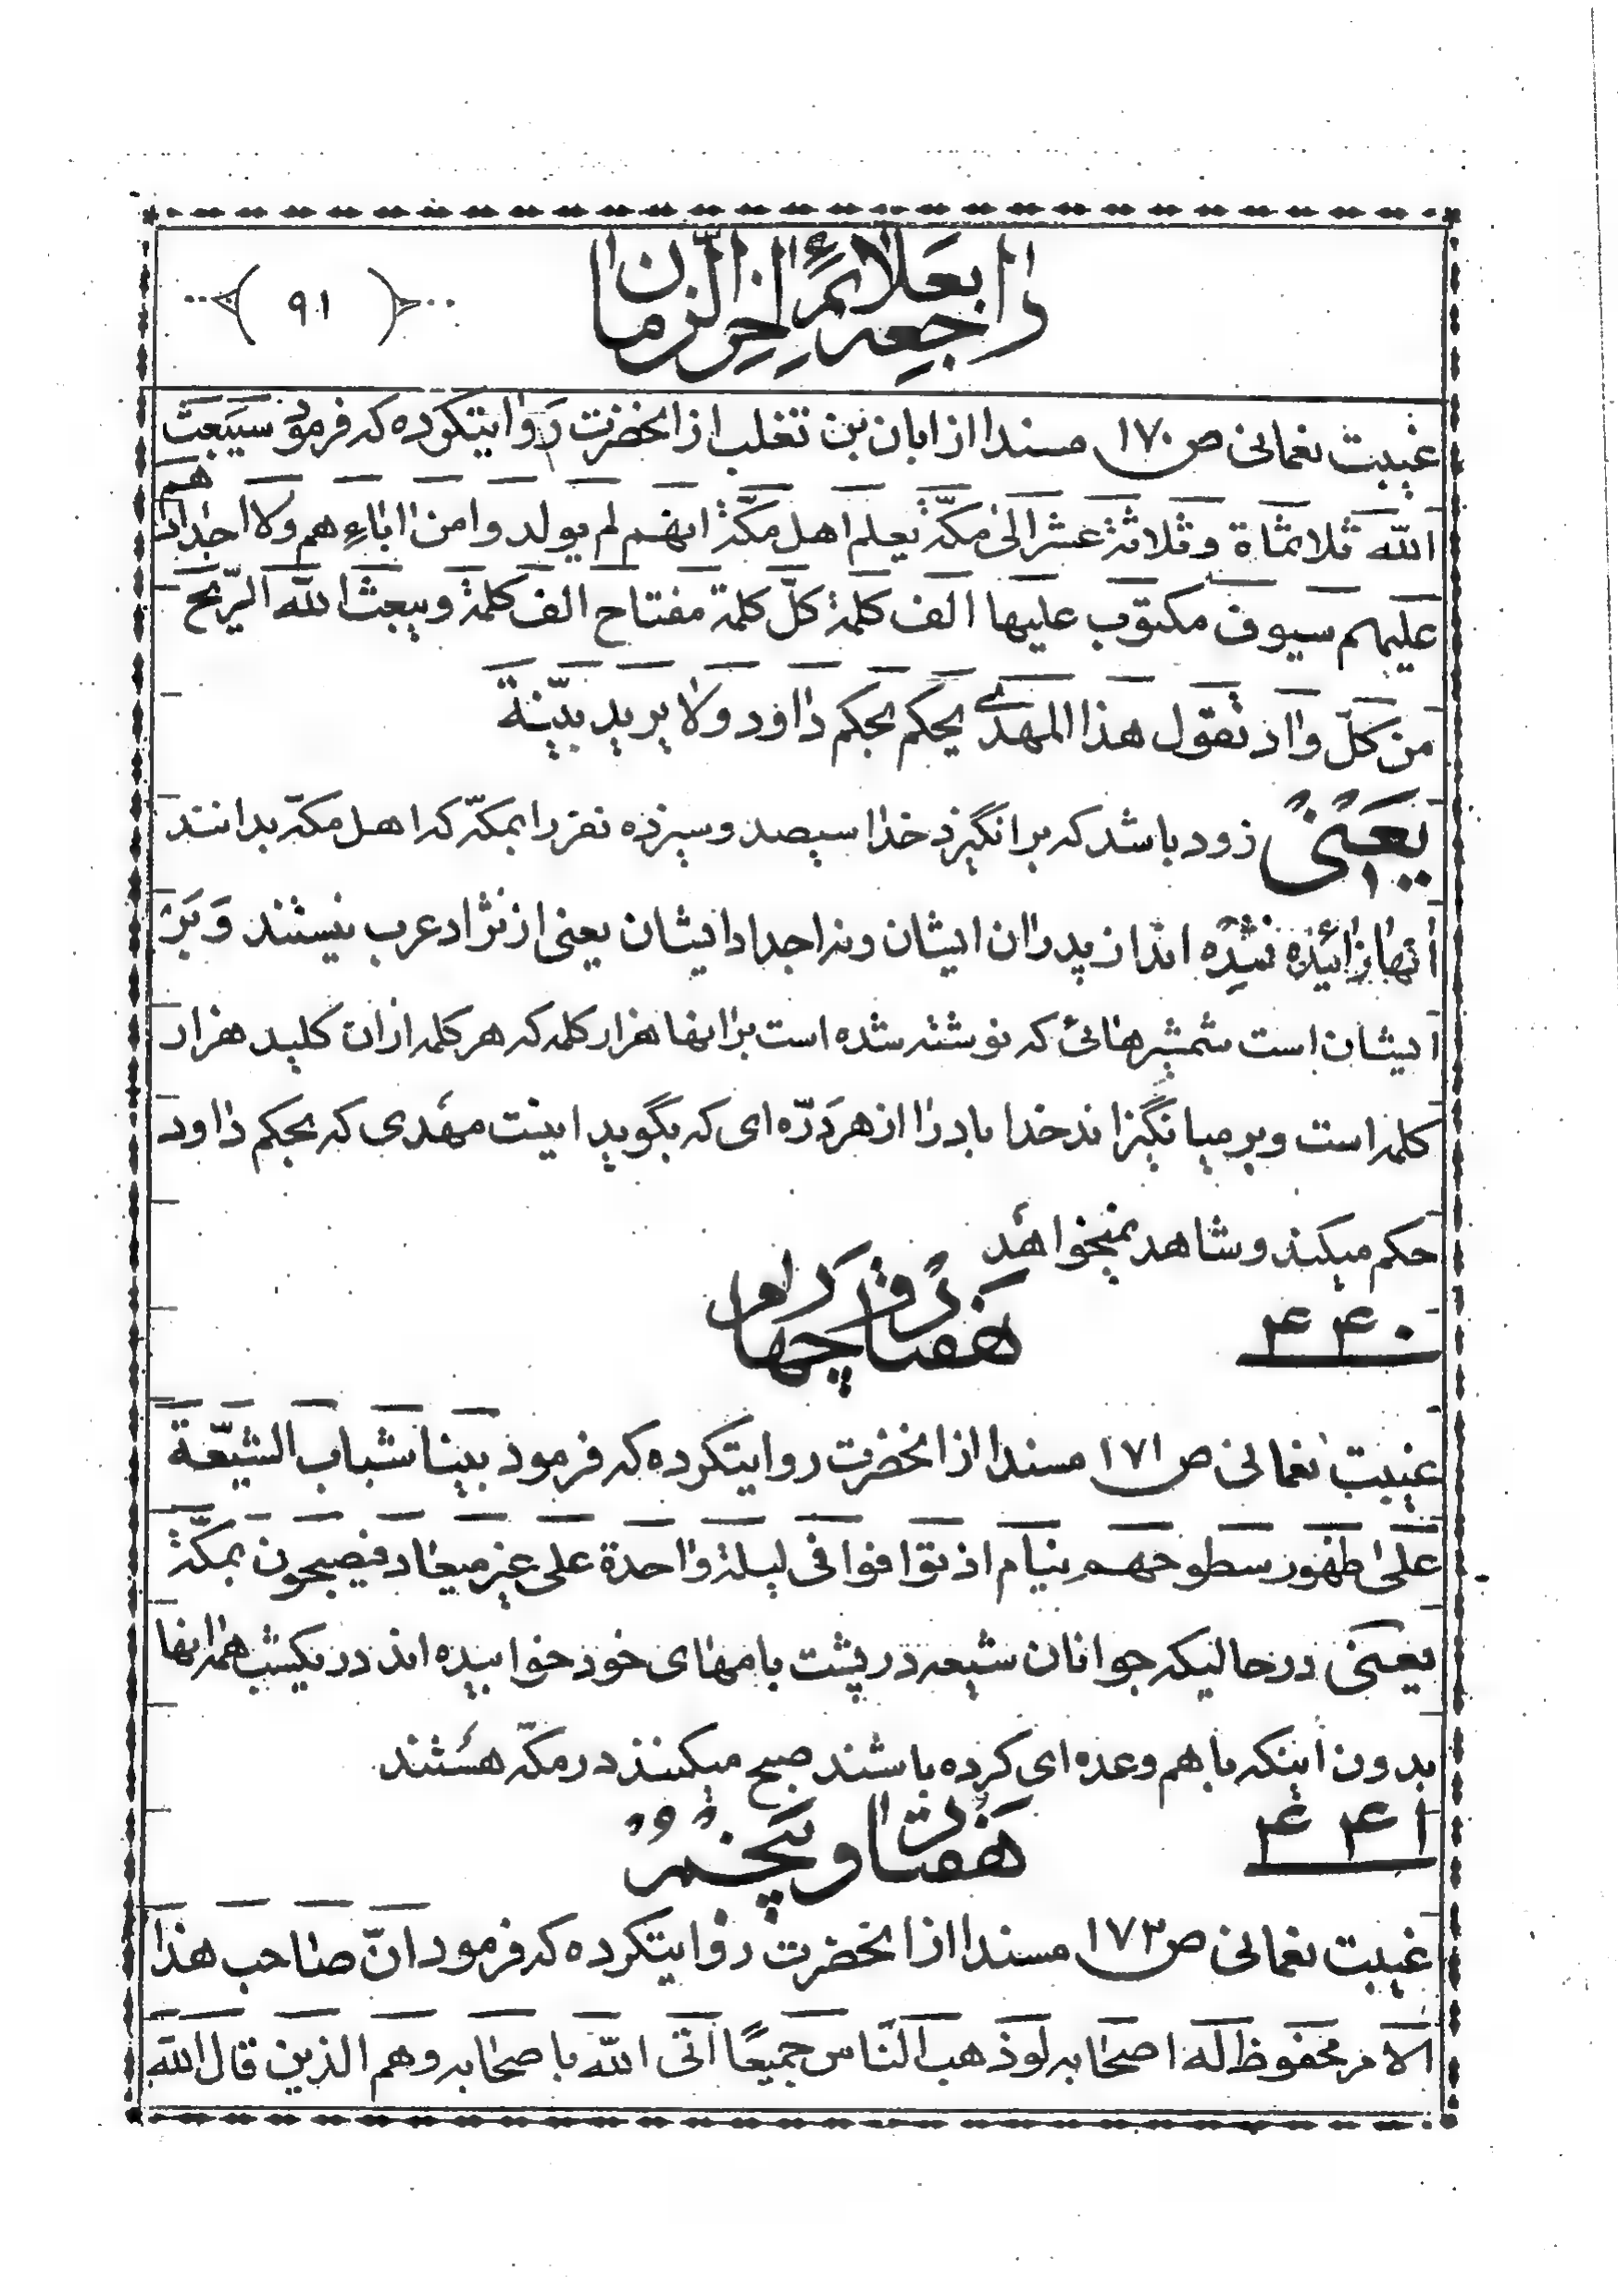 راجعه بعلائم اخر الزمان
( ٩١ )
غیبت نعمانی ص ١٧٠ مسندا از ابان بن تغلب از انحضرت روایتکرده که فرمود سیبعث
الله ثلاثمأة وثلاثة عشر الی مکّة یعلم اهل مکّة انهم لم یولدوا من اباءِهم ولا اجدادهم
علیهم سیوف مکتوب علیها الف کلمة کلّ کلمة مفتاح الف کلمة ویبعث الله الرّیح
من کلّ واد تقول هذا المهدی یحکم بحکم داود ولا یرید بیّنة
یعنی زود باشد که برانگیزد خدا سیصد وسیزده نفر را بمکّه که اهل مکّه بدانند
انها زائیده نشده اند از پدران ایشان ونه اجداد ایشان یعنی از نژاد عرب نیستند وبر
ایشان است شمشیرهائی که نوشته شده است بر انها هزار کلمه که هر کلمه از ان کلید هزار
کلمه است وبر میانگیزاند خدا باد را از هر درّه ای که بگوید اینت مهدی که بحکم داود
حکم میکند و شاهد نمیخواهد
۴۴۰ هفتاد و چهارم
غیبت نعمانی ص ١٧١ مسندا از انحضرت روایتکرده که فرمود بینا شباب الشیعة
علی ظهور سطوحهم نیام اذ توافوا فی لیلة واحدة علی غیر میعاد فیصبحون بمکّة
یعنی در حالیکه جوانان شیعه در پشت بامهای خود خوابیده اند در یکشب همه انها
بدون اینکه با هم وعده ای کرده باشند صبح میکنند در مکّه هستند
۴۴۱ هفتاد و پنجم
غیبت نعمانی ص ١٧٣ مسندا از انحضرت روایتکرده که فرمود انّ صاحب هذا
الامر محفوظ له اصحابه لو ذهب النّاس جمیعًا اتی الله باصحابه وهم الذین قال الله